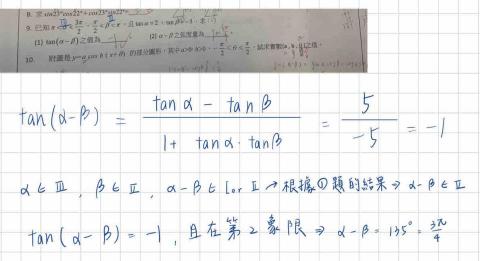 8. 求 sin23°cos22°+cos23°sin22°=
9. 已知 π < α < 3π/2, π/2 < β < π, 且 tan α = 2, tan β = -3, 求:
(1) tan(α-β)之值為 (2) α-β之弧度量為
10. 附圖是 y=a cos b(x+θ) 的部分圖形, 其中 a>0, b>0, -π/2 < θ < π/2, 試求實數(a, b, θ)之值。
tan(α-β) = (tan α - tan β)/(1+ tan α · tan β) = 5/-5 = -1
α ∈ Ⅲ , β ∈ Ⅱ , α-β ∈ Ⅰ or Ⅱ → 根據①題的結果 ⇒ α-β ∈ Ⅱ
tan(α-β) = -1 , 且在第2象限 ⇒ α-β = 135° = 3π/4